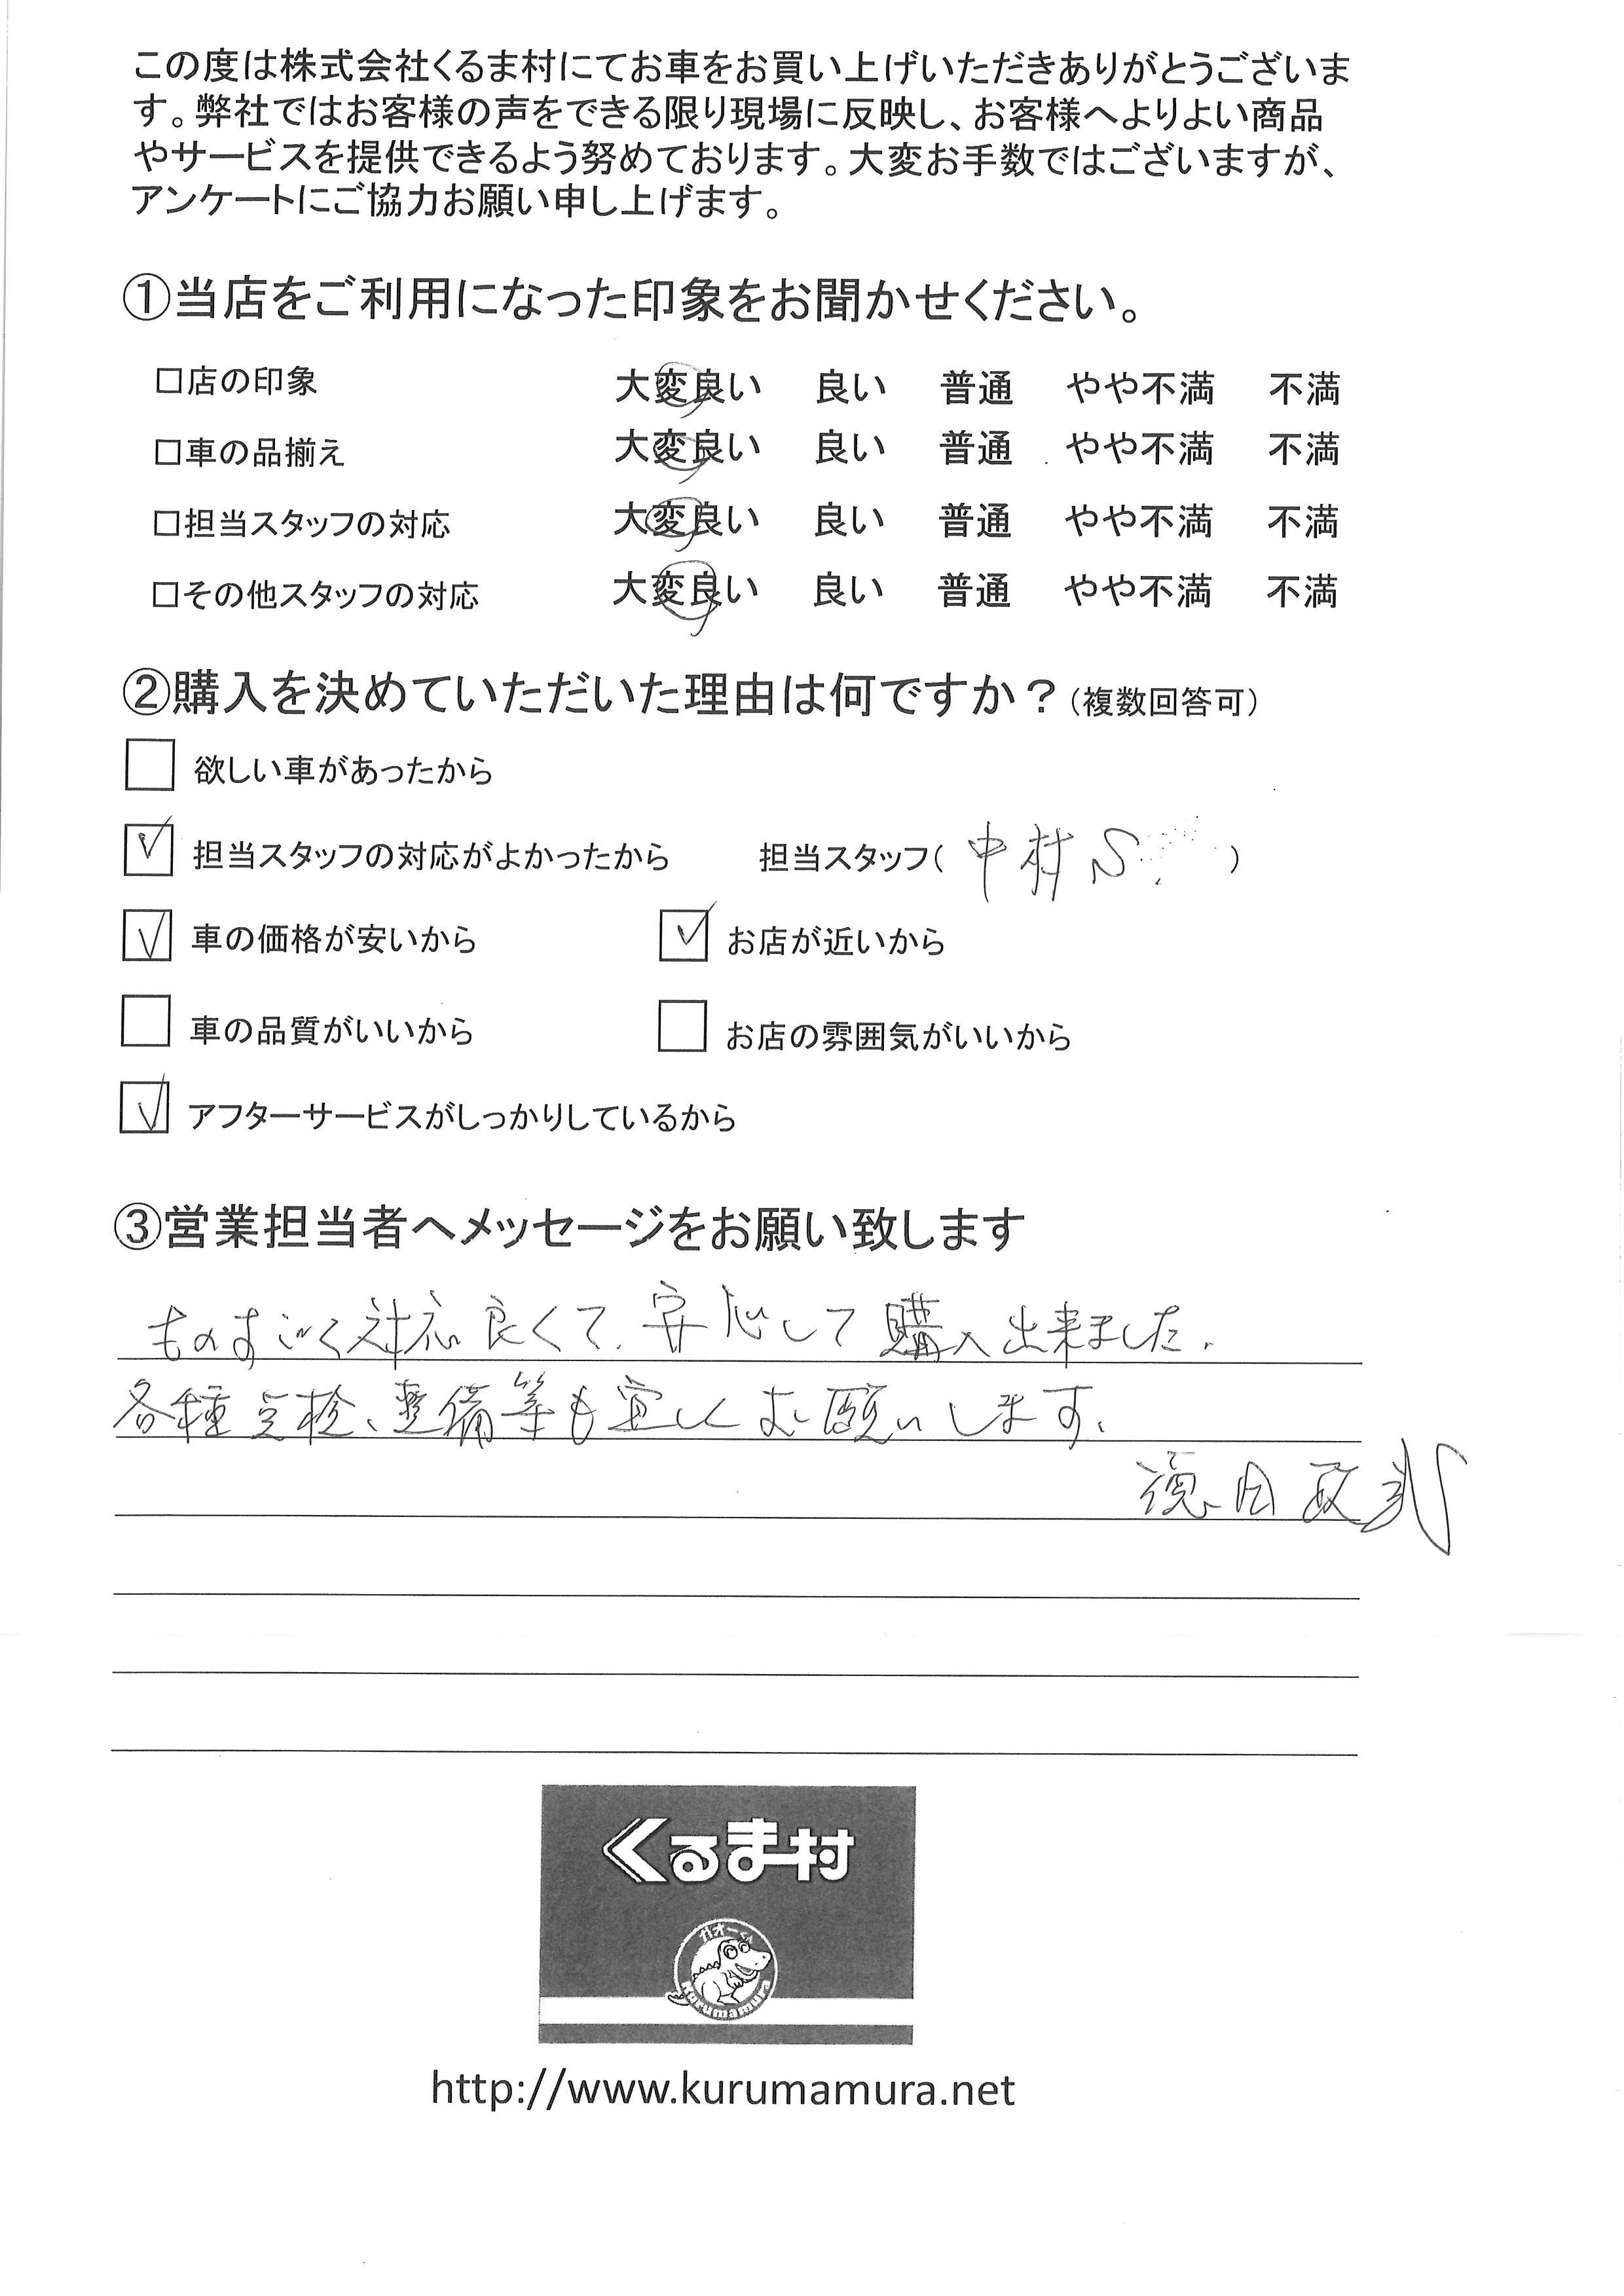 この度は株式会社くるま村にてお車をお買い上げいただきありがとうございま
す。弊社ではお客様の声をできる限り現場に反映し、お客様へよりよい商品
やサービスを提供できるよう努めております。大変お手数ではございますが、
アンケートにご協力お願い申し上げます。
①当店をご利用になった印象をお聞かせください。
□店の印象 大変良い 良い 普通 やや不満 不満
□車の品揃え 大変良い 良い 普通 やや不満 不満
□担当スタッフの対応 大変良い 良い 普通 やや不満 不満
□その他スタッフの対応 大変良い 良い 普通 やや不満 不満
②購入を決めていただいた理由は何ですか？（複数回答可）
欲しい車があったから
担当スタッフの対応がよかったから 担当スタッフ（中村S ）
車の価格が安いから お店が近いから
車の品質がいいから お店の雰囲気がいいから
アフターサービスがしっかりしているから
③営業担当者へメッセージをお願い致します
ものすごく対応良くて、安心して購入出来ました。
各種点検、整備等も宜しくお願いします、
くるま村
ガオーくん
kurumamura
http://www.kurumamura.net